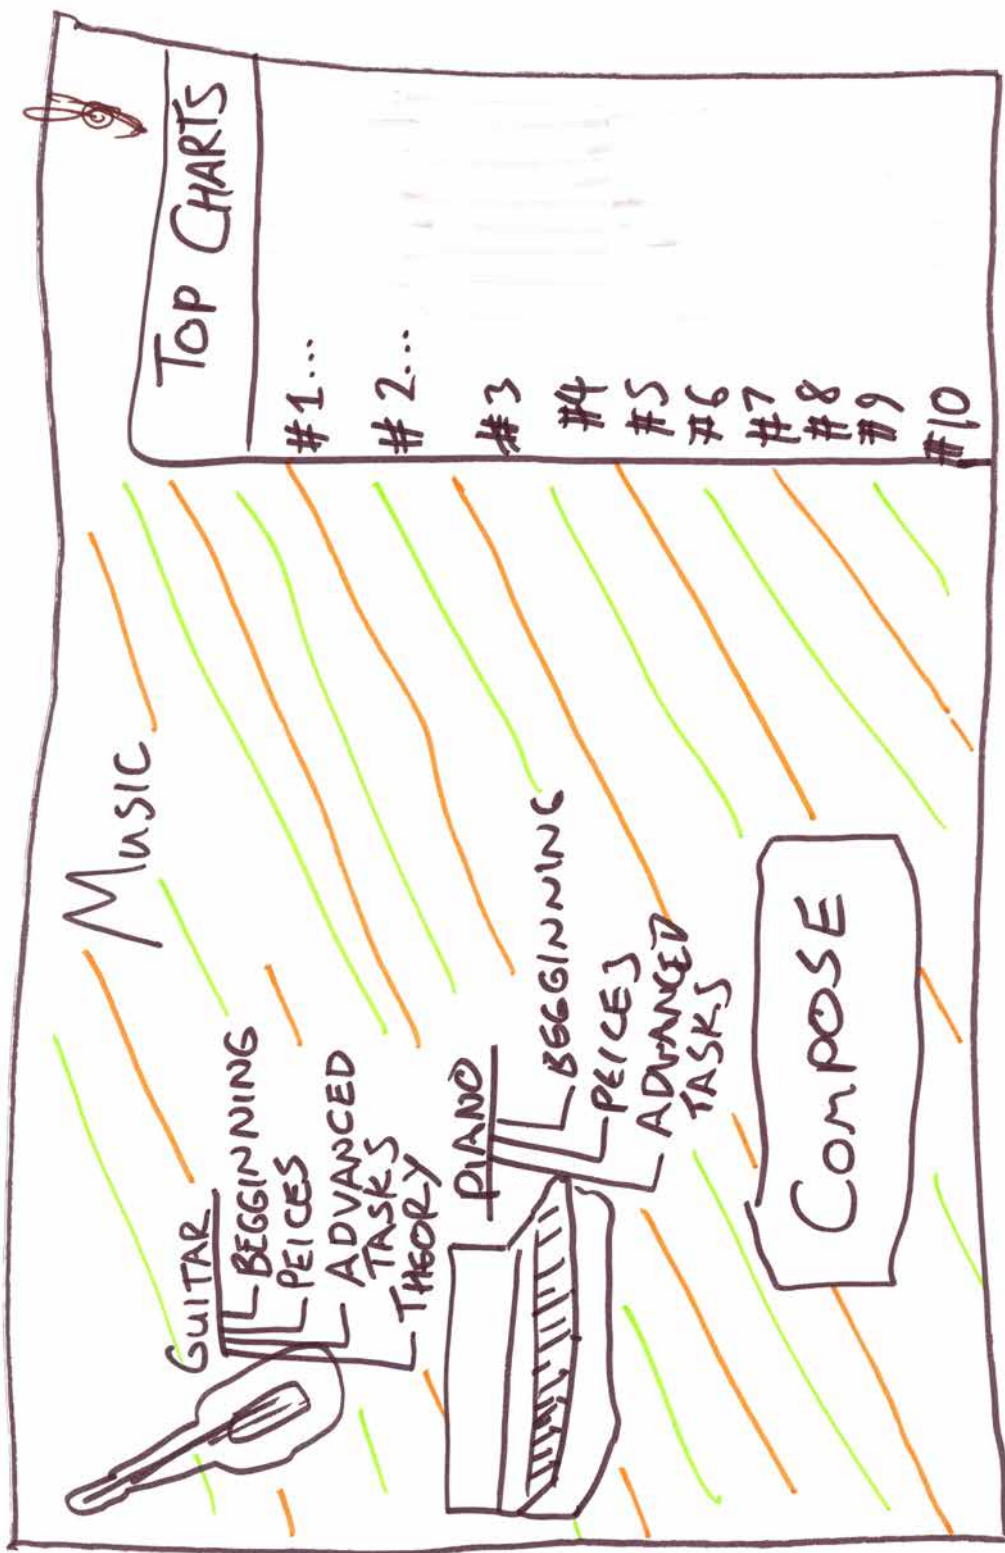 Music
GUITAR
BEGGINNING
PEICES
ADVANCED
TASKS
THEORY
PIANO
BEGGINNING
PEICES
ADVANCED
TASKS
COMPOSE
TOP CHARTS
#1...
#2...
#3
#4
#5
#6
#7
#8
#9
#10